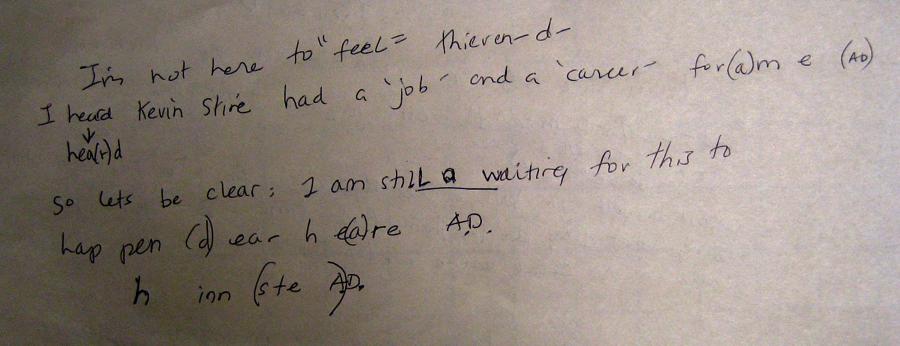 I'm not here to "feel= thieven-d-
I heard Kevin Shire had a 'job' and a 'career- for(a)m e (AD)
hea(r)d
So lets be clear; I am still a waiting for this to
hap pen (d) ear h e(a)re A.D.
h inn (ste AD.